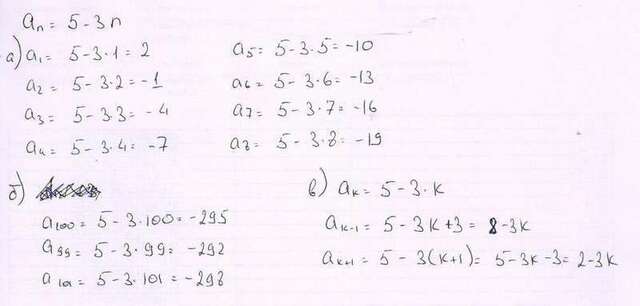 aₙ = 5 - 3n
а) a₁ = 5 - 3·1 = 2
a₂ = 5 - 3·2 = -1
a₃ = 5 - 3·3 = -4
a₄ = 5 - 3·4 = -7
a₅ = 5 - 3·5 = -10
a₆ = 5 - 3·6 = -13
a₇ = 5 - 3·7 = -16
a₈ = 5 - 3·8 = -19
б)
a₁₀₀ = 5 - 3·100 = -295
a₉₉ = 5 - 3·99 = -292
a₁₀₁ = 5 - 3·101 = -298
в) aₖ = 5 - 3·k
aₖ₋₁ = 5 - 3k + 3 = 8 - 3k
aₖ₊₁ = 5 - 3(k+1) = 5 - 3k - 3 = 2 - 3k